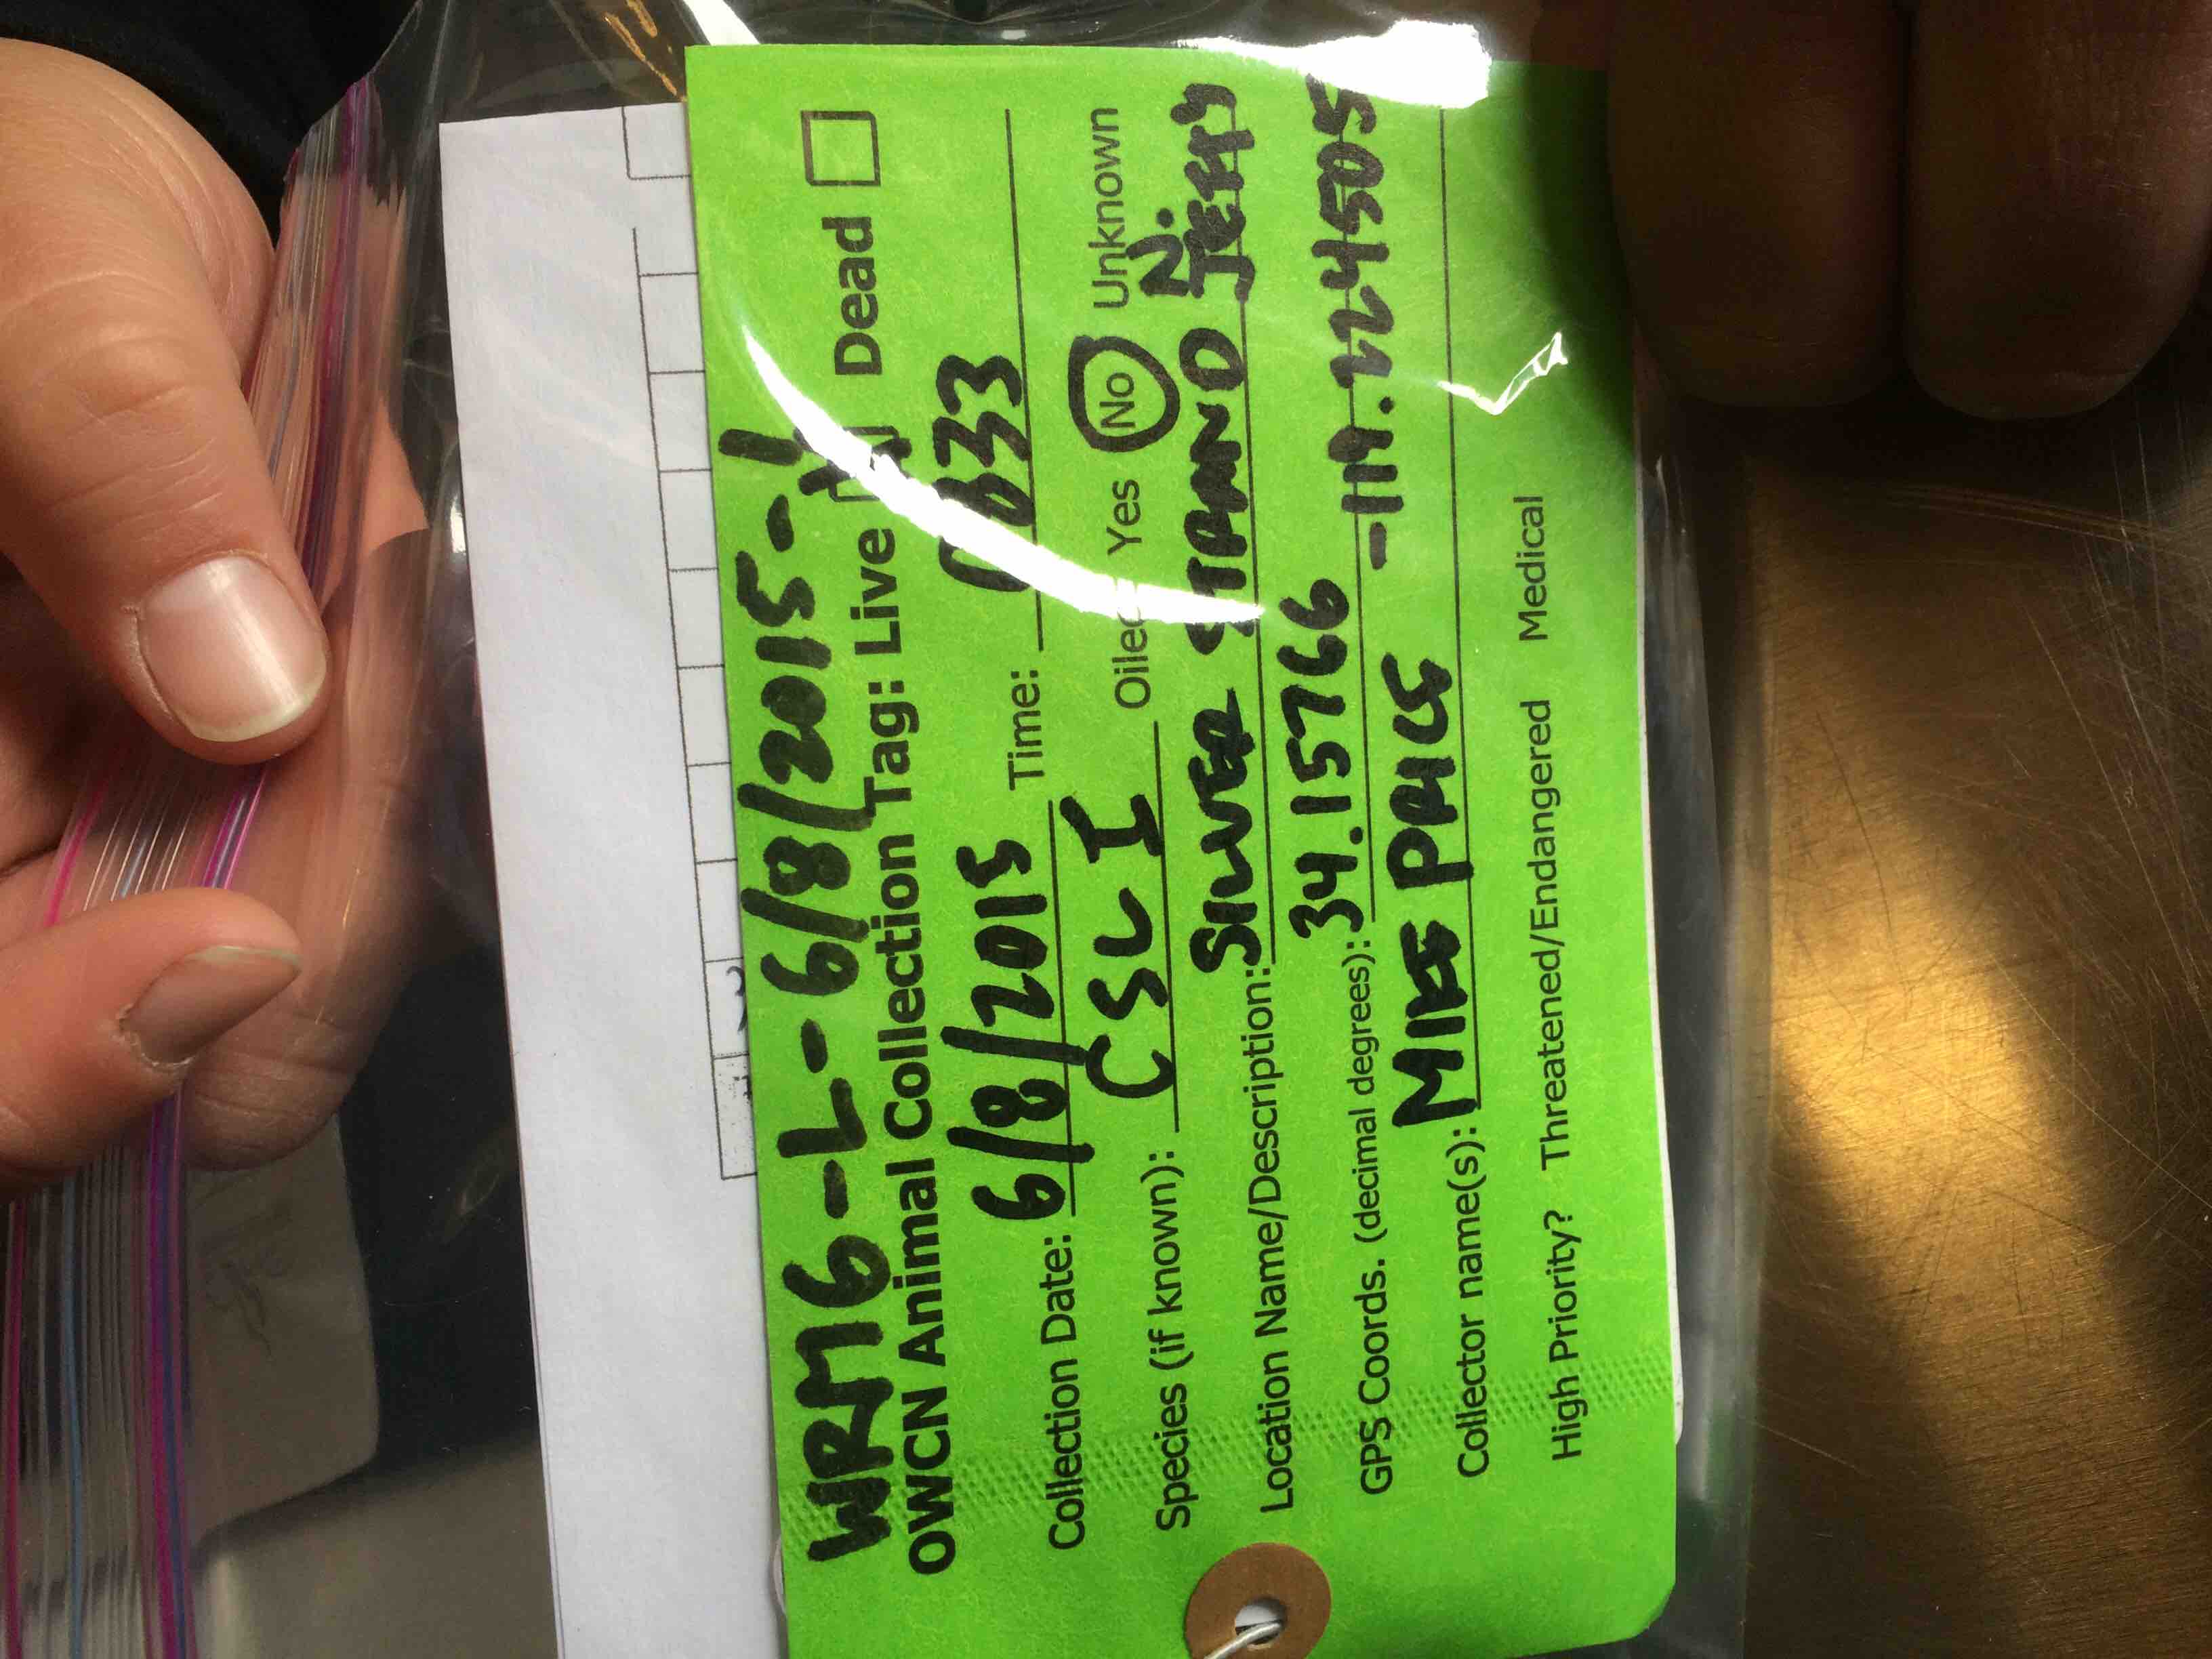 WRM6-L-6/8/2015-1
OWCN Animal Collection Tag: Live Dead
Collection Date: 6/8/2015 Time: 0833
Species (if known): CSLI Oiled Yes No Unknown
Location Name/Description: SILVER STRAND N. JETTY
GPS Coords. (decimal degrees): 34.15766 -119.224505
Collector name(s): MIKE PRICE
High Priority? Threatened/Endangered Medical